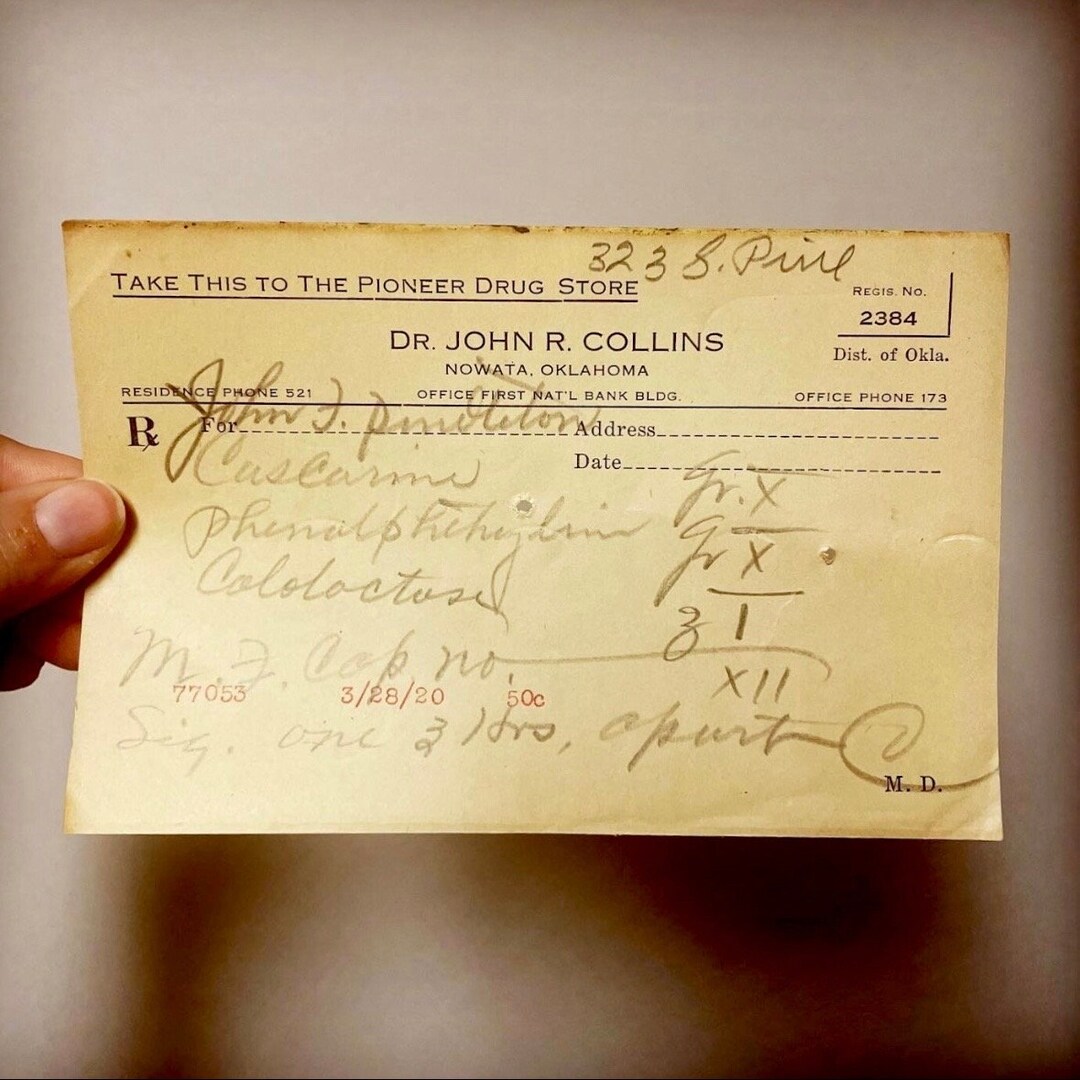 323 S. Pine
TAKE THIS TO THE PIONEER DRUG STORE
REGIS. NO.
2384
Dist. of Okla.
DR. JOHN R. COLLINS
NOWATA, OKLAHOMA
RESIDENCE PHONE 521 OFFICE FIRST NAT'L BANK BLDG. OFFICE PHONE 173
Rx For John F. Pendleton Address
Date
Cascarine gr. X
gr X
ʒ I
M. F. Cap no. XII
77053 3/28/20 50c
Sig. one 3 Hrs, apart
M. D.